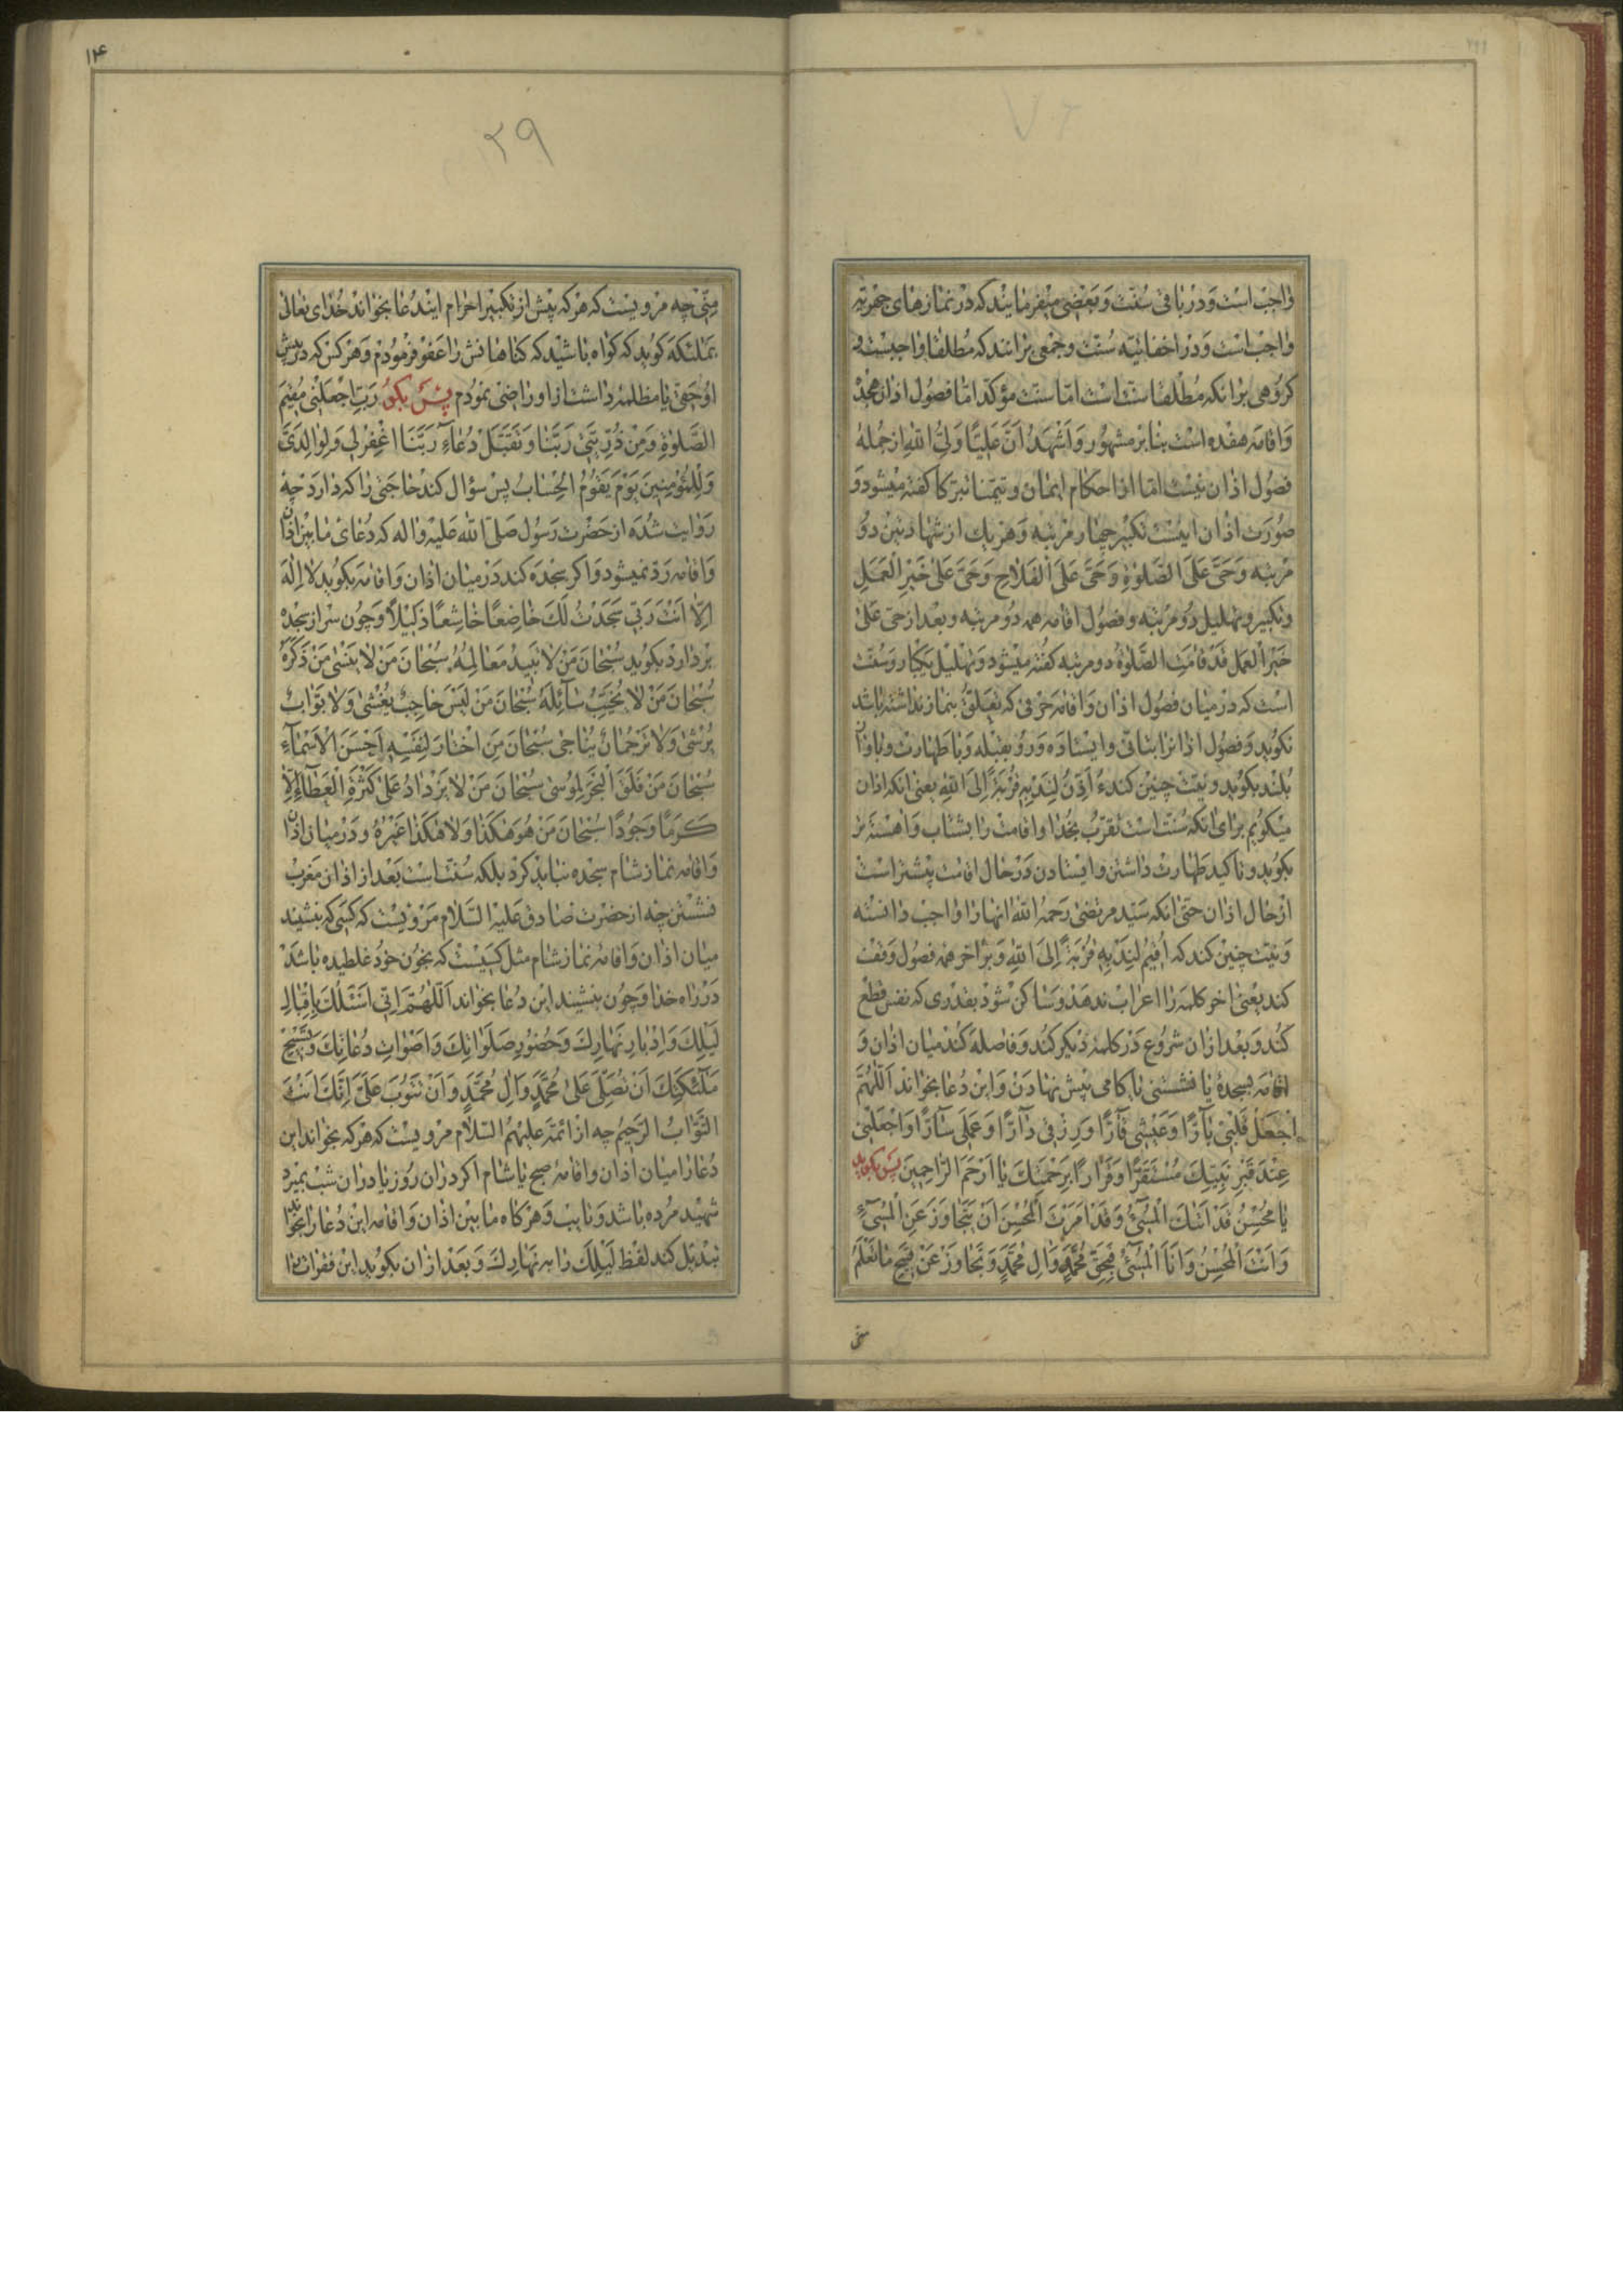 واجب است و در باقی سنت و بعضی میفرمایند که در نمازهای جهریه
واجب است و در اخفاتیه سنت و جمعی برانند که مطلقا واجبست و
کروهی برانکه مطلقا سنت است اما سنت مؤکد اما فصول اذان هجده
و اقامه هفده است بنابر مشهور و اَشْهَدُ اَنَّ عَلِیًّا وَلِیُّ اللهِ از جمله
فصول اذان نیست اما از احکام ایمان و تیمنا تبرکا کفته میشود و
صورت اذان اینست تکبیر چهار مرتبه و هر یک از شهادتین دو
مرتبه و حَیَّ عَلَی الصَّلوٰةِ وَ حَیَّ عَلَی الْفَلاٰحِ وَ حَیَّ عَلیٰ خَیْرِ الْعَمَلِ
و تکبیر و تهلیل دو مرتبه و فصول اقامه همه دو مرتبه و بعد از حی علی
خیر العمل قَدْ قٰامَتِ الصَّلوٰةُ دو مرتبه کفته میشود و تهلیل یکبار و سنت
است که در میان فصول اذان و اقامه حرفی که تعلق بنماز نداشته باشد
نکوید و فصول اذانرا بتانی و ایستاده و رو بقبله و با طهارت و باواز
بلند بکوید و نیت چنین کند اُاَذِّنُ لِنَدْبِهِ قُرْبَةً اِلَی اللهِ یعنی اینکه اذان
میکویم برای انکه سنت است تقرب بخدا و اقامت را بشتاب و اهسته تر
بکوید و تاکید طهارت داشتن و ایستادن در حال اقامت بیشتر است
از حال اذان حتی انکه سید مرتضی رحمه الله انها را واجب دانسته
و نیت چنین کند که اُقیمُ لِنَدْبِهِ قُرْبَةً اِلَی اللهِ و بر اخر همه فصول وقف
کند یعنی اخر کلمه را اعراب ندهد و ساکن شود بقدری که نفس قطع
کند و بعد ازان شروع در کلمه دیکر کند و فاصله کند میان اذان و
اقامه بسجده یا نشستنی یا کامی پیش نهادن و این دعا بخواند اَللّٰهُمَّ
اجْعَلْ قَلْبی بٰآرًّا وَ عَیْشی قٰآرًّا وَ رِزْقی دٰآرًّا وَ عَمَلی سٰآرًّا وَ اجْعَلْنی
عِنْدَ قَبْرِ نَبِیِّکَ مُسْتَقَرًّا وَ قَرٰارًا بِرَحْمَتِکَ یٰا اَرْحَمَ الرّٰاحِمینَ پس بکوید
یٰا مُحْسِنُ قَدْ اَتٰاکَ الْمُسیٓئُ وَ قَدْ اَمَرْتَ الْمُحْسِنَ اَنْ یَتَجٰاوَزَ عَنِ الْمُسیٓءِ
وَ اَنْتَ الْمُحْسِنُ وَ اَنَا الْمُسیٓئُ فَبِحَقِّ مُحَمَّدٍ وَ اٰلِ مُحَمَّدٍ وَ تَجٰاوَزْ عَنْ قَبیحِ مٰا تَعْلَمُ
منی
۱۴
۲۹
مِنّی چه مرویست که هر که پیش از تکبیر احرام ایندعا بخواند خدای تعالی
بملئکه کوید که کواه باشید که کناهانش را عفو فرمودم و هر کس که در پیش
او حقی یا مظلمه داشت از او راضی نمودم پس بکو رَبِّ اجْعَلْنی مُقیمَ
الصَّلوٰةِ وَ مِنْ ذُرِّیَّتی رَبَّنٰا وَ تَقَبَّلْ دُعٰآءِ رَبَّنَا اغْفِرْ لی وَ لِوٰالِدَیَّ
وَ لِلْمُؤْمِنینَ یَوْمَ یَقُومُ الْحِسٰابُ پس سؤال کند حاجتی را که دارد چه
روایت شده از حضرت رسول صلی الله علیه واله که دعای ما بین اذان
و اقامه رد نمیشود و اکر سجده کند در میان اذان و اقامه بکوید لاٰ اِلٰهَ
اِلاّٰ اَنْتَ رَبّی سَجَدْتُ لَکَ خٰاضِعًا خٰاشِعًا ذَلیلاً و چون سر از سجده
بردارد بکوید سُبْحٰانَ مَنْ لاٰ تَبیدُ مَعٰالِمُهُ سُبْحٰانَ مَنْ لاٰ یَنْسیٰ مَنْ ذَکَرَهُ
سُبْحٰانَ مَنْ لاٰ یُخَیِّبُ سٰآئِلَهُ سُبْحٰانَ مَنْ لَیْسَ حٰاجِبٌ یُغْشیٰ وَ لاٰ بَوّٰابٌ
یُرْشیٰ وَ لاٰ تَرْجُمٰانٌ یُنٰاجیٰ سُبْحٰانَ مَنِ اخْتٰارَ لِنَفْسِهِ اَحْسَنَ الْاَسْمٰآءِ
سُبْحٰانَ مَنْ فَلَقَ الْبَحْرَ لِمُوسیٰ سُبْحٰانَ مَنْ لاٰ یَزْدٰادُ عَلیٰ کَثْرَةِ الْعَطٰآءِ اِلاّٰ
کَرَمًا وَ جُودًا سُبْحٰانَ مَنْ هُوَ هٰکَذٰا وَ لاٰ هٰکَذٰا غَیْرُهُ و در میان اذان
و اقامه نماز شام سجده نباید کرد بلکه سنت است بعد از اذان مغرب
نشستن چه از حضرت صادق علیه السلام مرویست که کسی که بنشیند
میان اذان و اقامه نماز شام مثل کسیست که بخون خود غلطیده باشد
در راه خدا و چون بنشیند این دعا بخواند اَللّٰهُمَّ اِنّی اَسْئَلُکَ بِاِقْبٰالِ
لَیْلِکَ وَ اِدْبٰارِ نَهٰارِکَ وَ حُضُورِ صَلَوٰاتِکَ وَ اَصْوٰاتِ دُعٰاتِکَ وَ تَسْبیحِ
مَلٰٓئِکَتِکَ اَنْ تُصَلِّیَ عَلیٰ مُحَمَّدٍ وَ اٰلِ مُحَمَّدٍ وَ اَنْ تَتُوبَ عَلَیَّ اِنَّکَ اَنْتَ
التَّوّٰابُ الرَّحیمُ چه از ائمه علیهم السلام مرویست که هر که بخواند این
دعا را میان اذان و اقامه صبح یا شام اکر دران روز یا دران شب بمیرد
شهید مرده باشد و تایب و هرکاه ما بین اذان و اقامه این دعا را بخواند
تبدیل کند لفظ لَیْلِکَ را به نَهٰارِکَ و بعد ازان بکوید این فقرات را